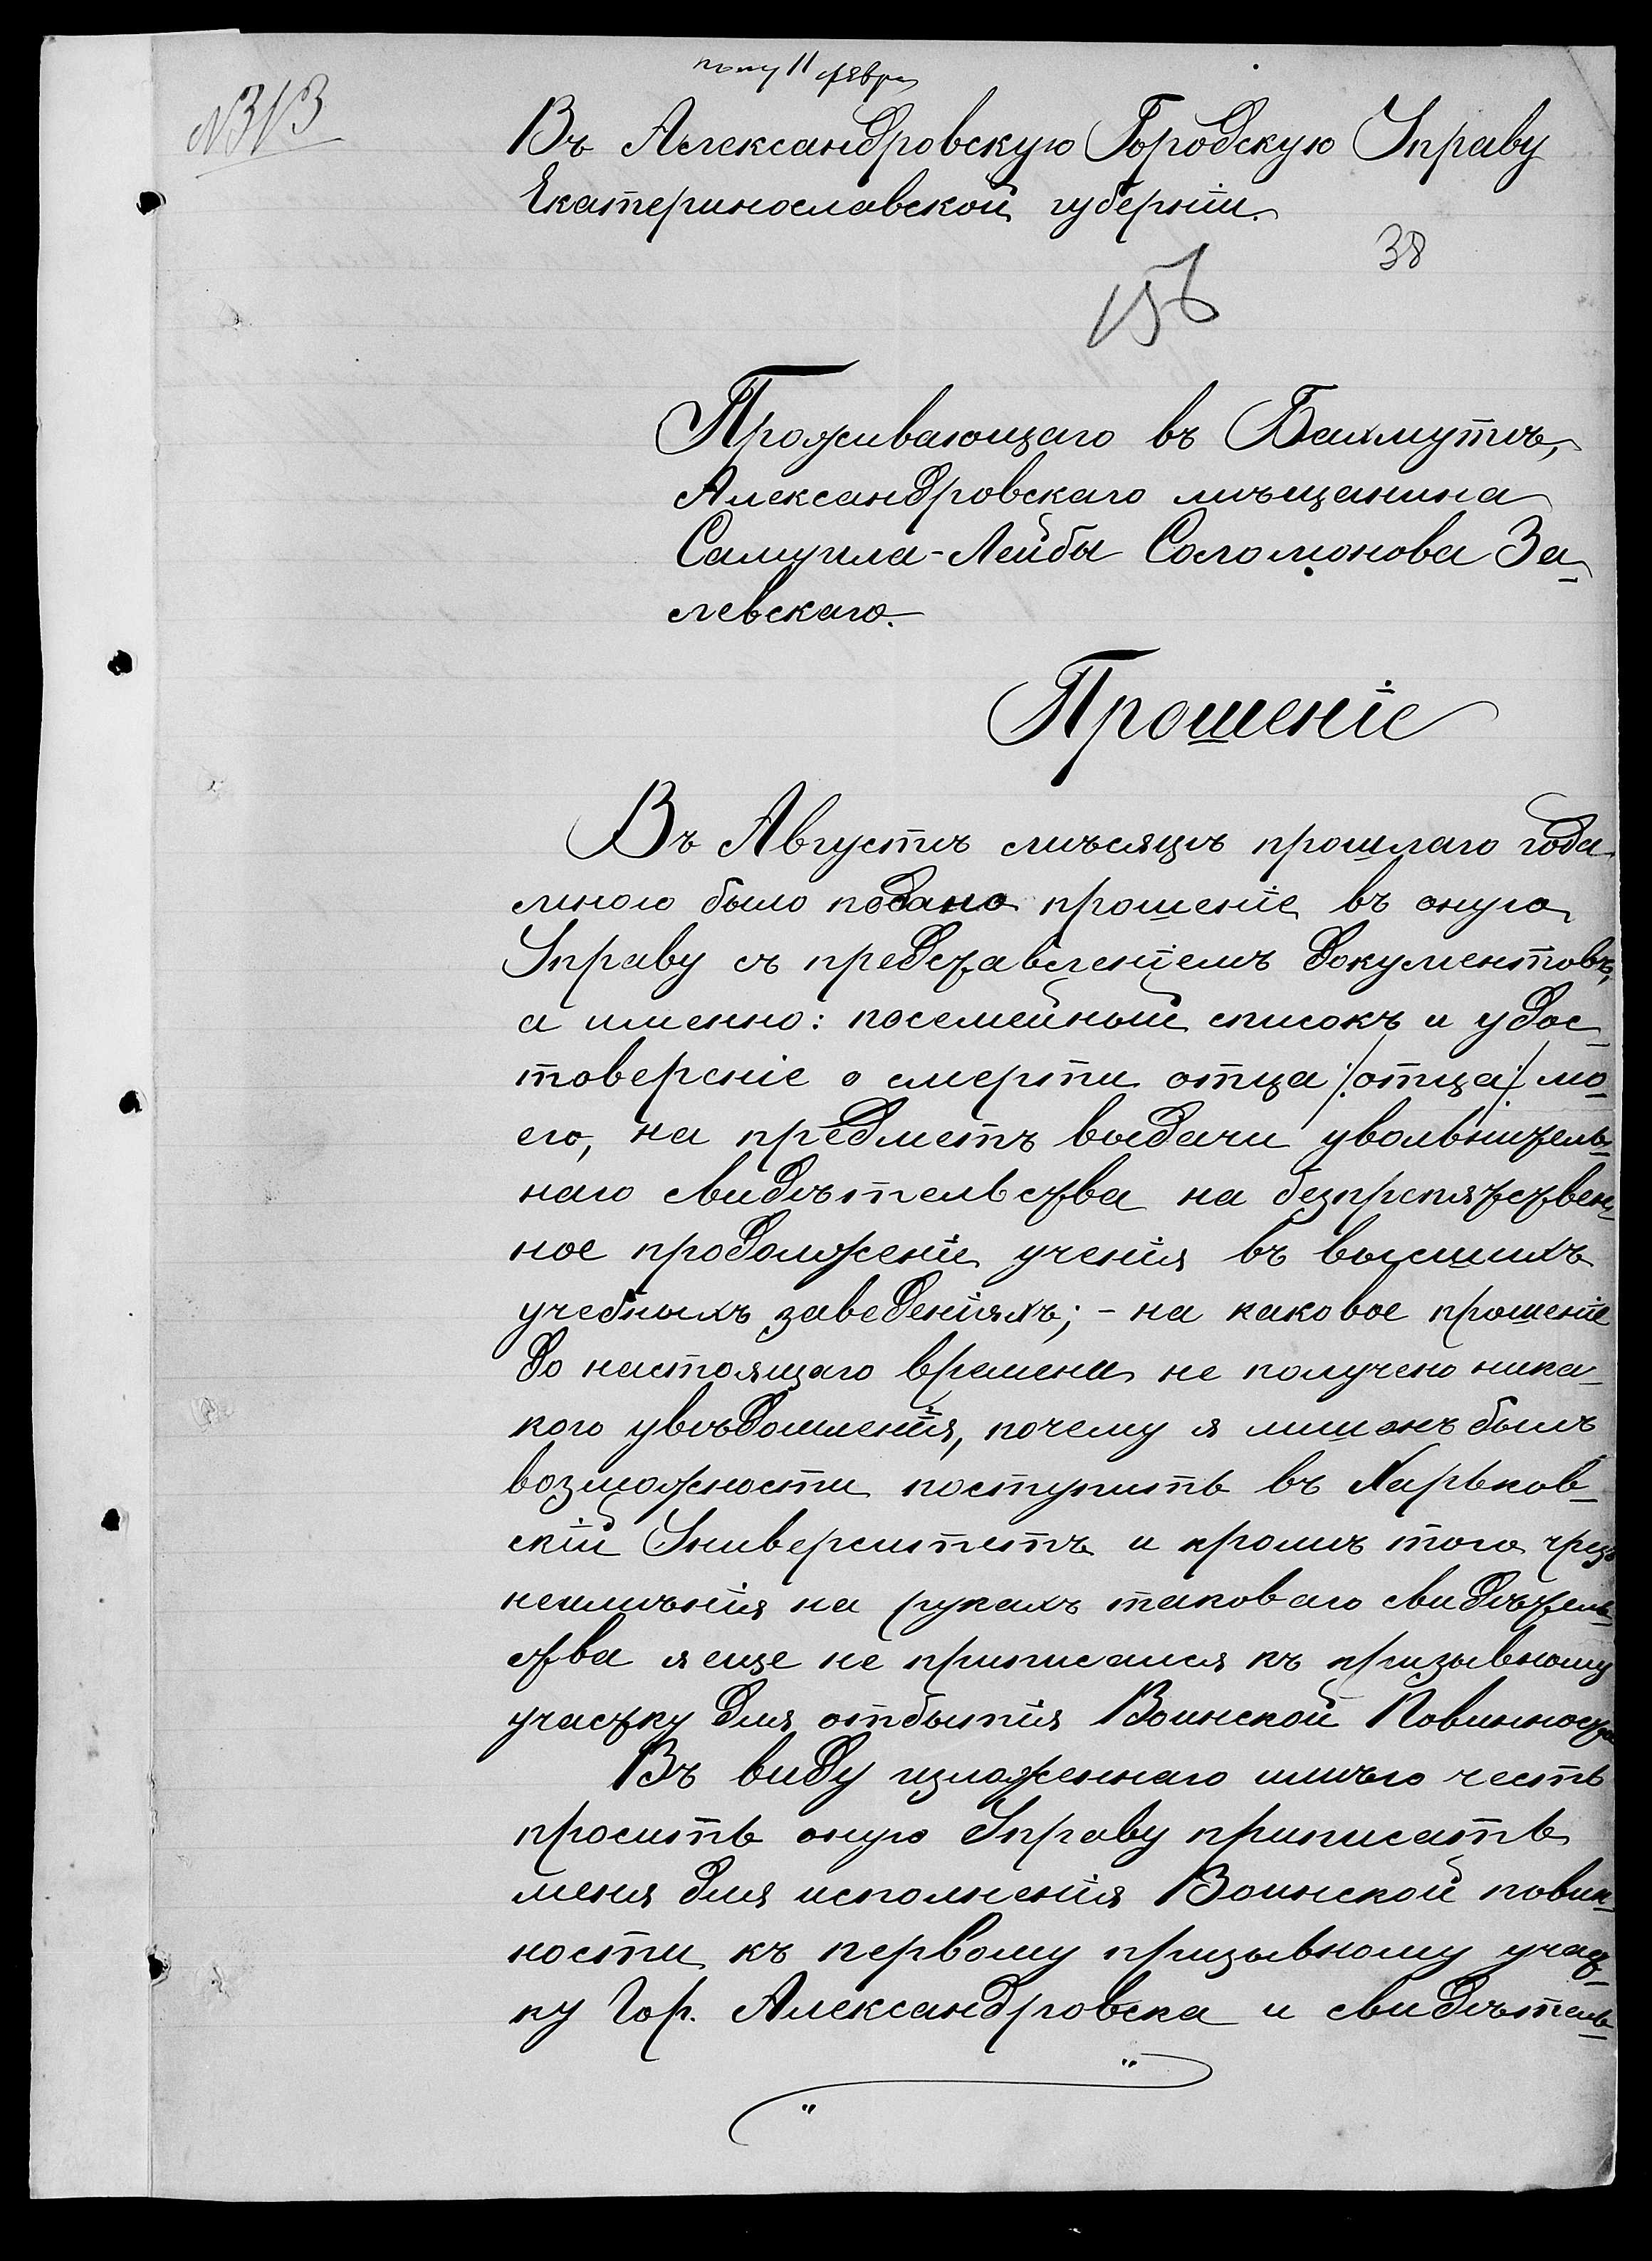 11 февр
№ 313
Въ Александровскую Городскую Управу
Екатеринославской губерніи.
38
156
Проживающаго въ Бахмутѣ,
Александровскаго мѣщанина
Самуила-Лейбы Соломонова За-
левскаго.
Прошеніе
Въ Августѣ мѣсяцѣ прошлаго года
мною было подано прошеніе въ оную
Управу съ представленіемъ документовъ,
а именно: посемейный списокъ и удос-
товереніе о смерти отца /:отца:/ мо-
его, на предметъ выдачи увольнитель-
наго свидѣтельства на безпрепятствен-
ное продолженіе ученія въ высшихъ
учебныхъ заведеніяхъ; - на каковое прошеніе
до настоящаго времени не получено ника-
кого увѣдомленія, почему я лишонъ былъ
возможности поступить въ Харьков-
скій Университетъ и кромѣ того чрезъ
неимѣнія на рукахъ таковаго свидѣтель-
ства я еще не приписался къ призывному
участку для отбытія Воинской Повинности
Въ виду изложеннаго имѣю честь
просить оную Управу приписать
меня для исполненія Воинской повин-
ности къ первому призывному участ-
ку Гор. Александровска и свидѣтель-